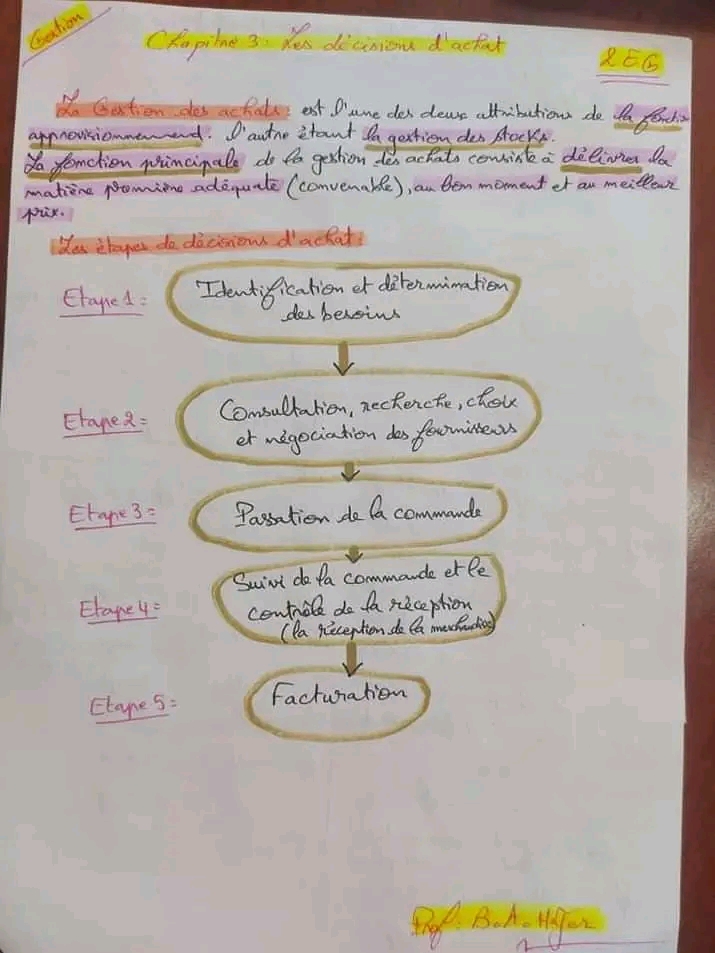 Gestion
Chapitre 3: Les décisions d'achat
2 EG
La Gestion des achats: est l'une des deux attributions de la fonction
approvisionnemend. l'autre étant la gestion des stocks.
La fonction principale de la gestion des achats consiste à délivrer la
matière première adéquate (convenable), au bon moment et au meilleur
prix.
Les étapes de décisions d'achat:
Etape 1:
Identification et détermination
des besoins
Etape 2:
Consultation, recherche, choix
et négociation des fournisseurs
Etape 3:
Passation de la commande
Etape 4:
Suivi de la commande et le
contrôle de la réception
(la réception de la marchandise)
Etape 5:
Facturation
Prof: B.A. Hajar